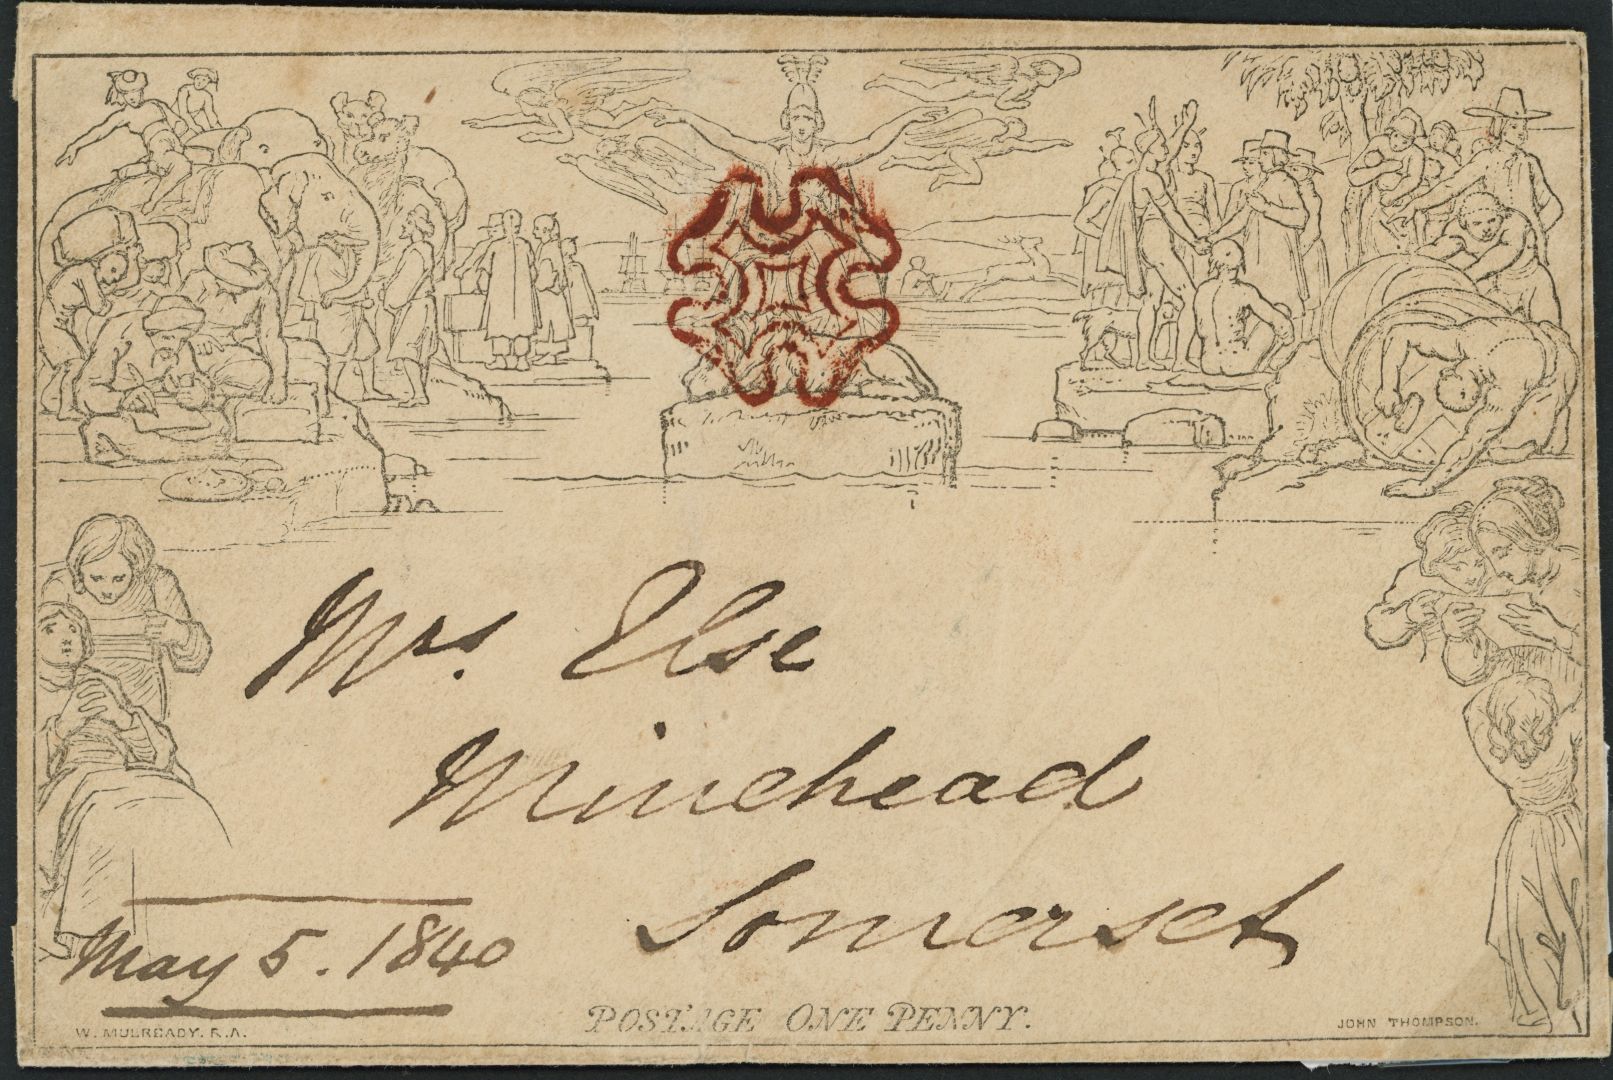 Mrs. Else
Minehead
Somerset
May 5. 1840
POSTAGE ONE PENNY.
W. MULREADY. R.A.
JOHN THOMPSON.